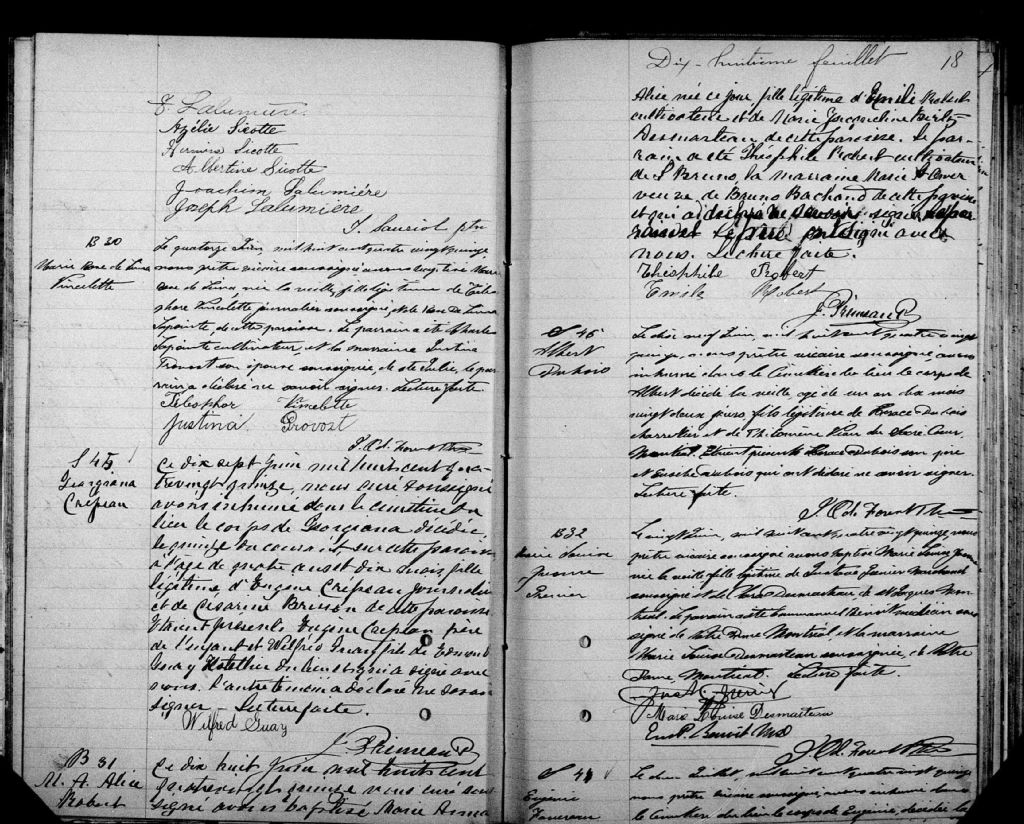 F. Lalumière.
Azélie Sicotte
Sicotte
Albertine Sicotte
Joachim Lalumière
Joseph Lalumière
B 30
Marie Rose de Lima
Vincelette
Le quatorze Juin, mil huit cent quatre vingt quinze
nous prêtre vicaire soussigné avons baptisé Marie
Rose de Lima née la veille, fille légitime de Téles-
phore Vincelette journalier soussigné, et de Rose de Lima
Lapointe, de cette paroisse. Le parrain a été Charles
Lapointe cultivateur, et la marraine Justina
Provost son épouse soussignée, de Ste Julie, le par-
rain a déclaré ne savoir signer. Lecture faite
Télesphor Vincelette
Justina Provost
S 45
Georgiana
Crépeau
Ce dix sept Juin mil huit cent qua-
trevingt quinze, nous curé soussigné
avons inhumé dans le cimetière du
lieu le corps de Georgiana décédée
le quinze du courant sur cette paroisse
à l'âge de quatre ans et dix mois fille
légitime d'Eugène Crépeau journalier
et de Césarine Brisson de cette paroisse
Etaient présents Eugène Crépeau père
de l'enfant et Wilfrid Guay fils de
Guay qui a signé avec
nous. l'autre témoin a déclaré ne savoir
signer - Lecture faite.
Wilfred Guay
J. Primeau Ptr
B 31
M. A. Alice
Robert
Ce dix huit Juin mil huit cent
quatrevingt quinze nous curé sous-
signé avons baptisé Marie Anna
Dix-huitieme feuillet 18
Alice née ce jour fille légitime d'Emile Robert
cultivateur et de Marie Jacqueline
Desmarteau de cette paroisse. Le par-
rain a été Théophile Robert cultivateur
de St Bruno, la marraine Marie
veuve de Bruno Bachand de cette paroisse
et qui a déclaré ne savoir signer
avec
nous. Lecture faite.
Théophile Robert
Emile Robert
J. Primeau Ptr
S 46
Albert
Dubois
Le dix neuf Juin, mil huit cent quatre vingt
quinze, nous prêtre vicaire soussigné avons
inhumé dans le cimetière du lieu le corps de
Albert décédé la veille, agé de un an dix mois
vingt deux jours, fils légitime de Horace Dubois
charretier et de Philomène Viau du Sacré Coeur,
Montréal. Etaient présents Horace Dubois son père
et Dubois qui ont déclaré ne savoir signer.
Lecture faite.
B 32
Marie Louise
Jeanne
Le vingt Juin, mil huit cent quatre vingt quinze, nous
prêtre vicaire soussigné avons baptisé Marie Louise Jeanne
née la veille fille légitime de Gustave marchand
soussigné et de Desmarteau de St Jacques Mont-
réal. Le parrain a été Emmanuel Benoit médecin sous-
signé de Notre Dame Montréal et la marraine
Marie Louise Desmarteau soussignée, de Notre
Dame Montréal. Lecture faite.
Marie Louise Desmarteau
Em. P. Benoit M.D
S 4
Eugénie
Le deux Juillet, mil huit cent quatre vingt quinze
nous prêtre vicaire soussigné, avons inhumé dans
le cimetière du lieu le corps de Eugénie, décédée la